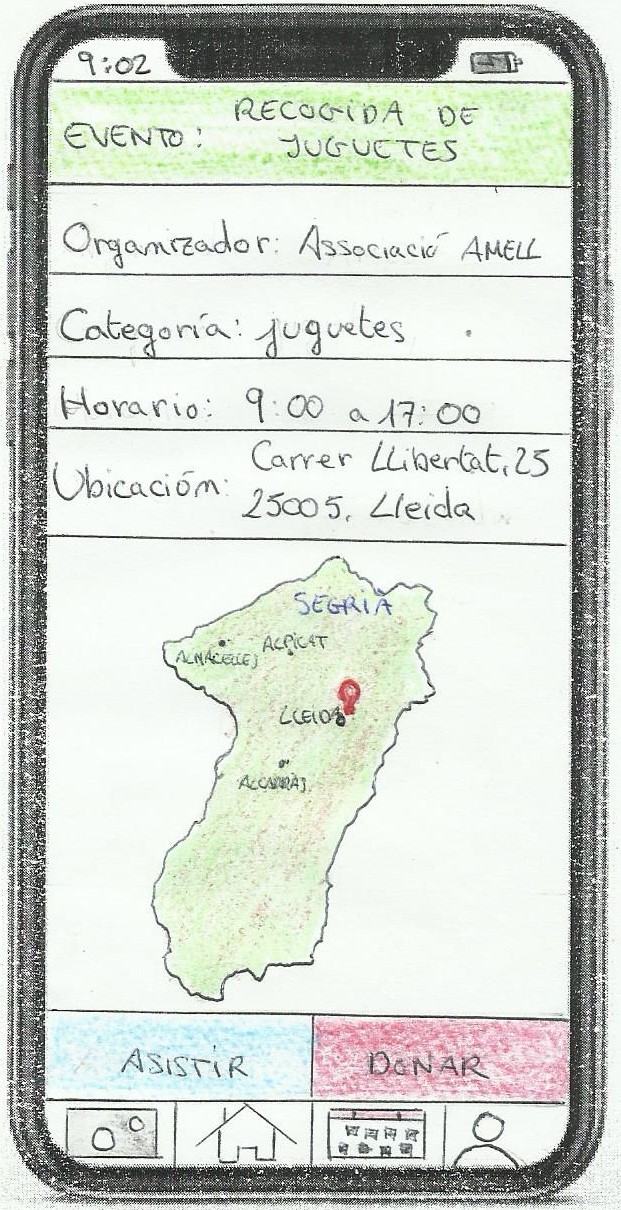 9:02
RECOGIDA DE
EVENTO: JUGUETES
Organizador: Associació AMELL
Categoría: juguetes
Horario: 9:00 a 17:00
Carrer LLibertat, 25
Ubicación:
25005, Lleida
SEGRIÀ
ALPICAT
ALMACELLES
LLEIDA
ALCARRÀS
ASISTIR
DONAR